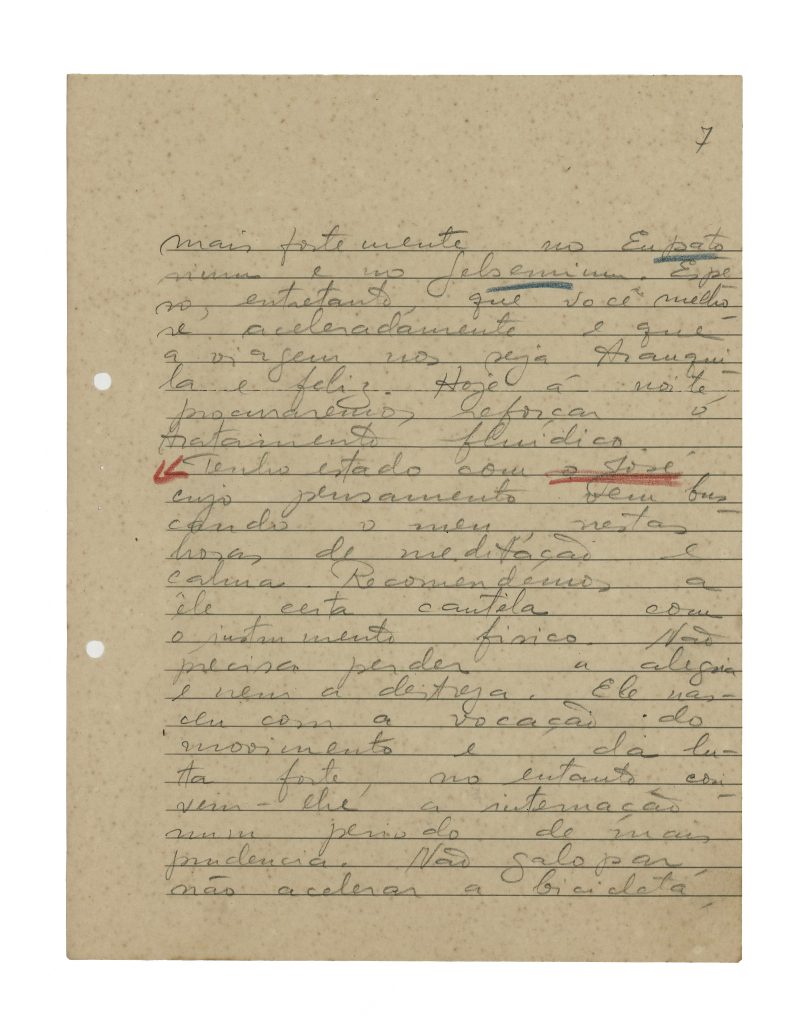 7
mais fortemente no Eupato
rium e no Gelsemium. Espe
ro, entretanto, que você melho-
re aceleradamente e que
a viagem nos seja tranqui-
la e feliz. Hoje á noite,
procuraremos reforçar o
tratamento fluídico.
Tenho estado com o José,
cujo pensamento vem bus-
cando o meu, nestas
horas de meditação e
calma. Recomendemos a
êle certa cautela com
o instrumento fisico. Não
precisa perder a alegria
e nem a destreza. Ele nas-
ceu com a vocação do
movimento e da lu-
ta forte, no entanto, con-
vem-lhe a internação
num periodo de mais
prudencia. Não galopar,
não acelerar a bicicleta,